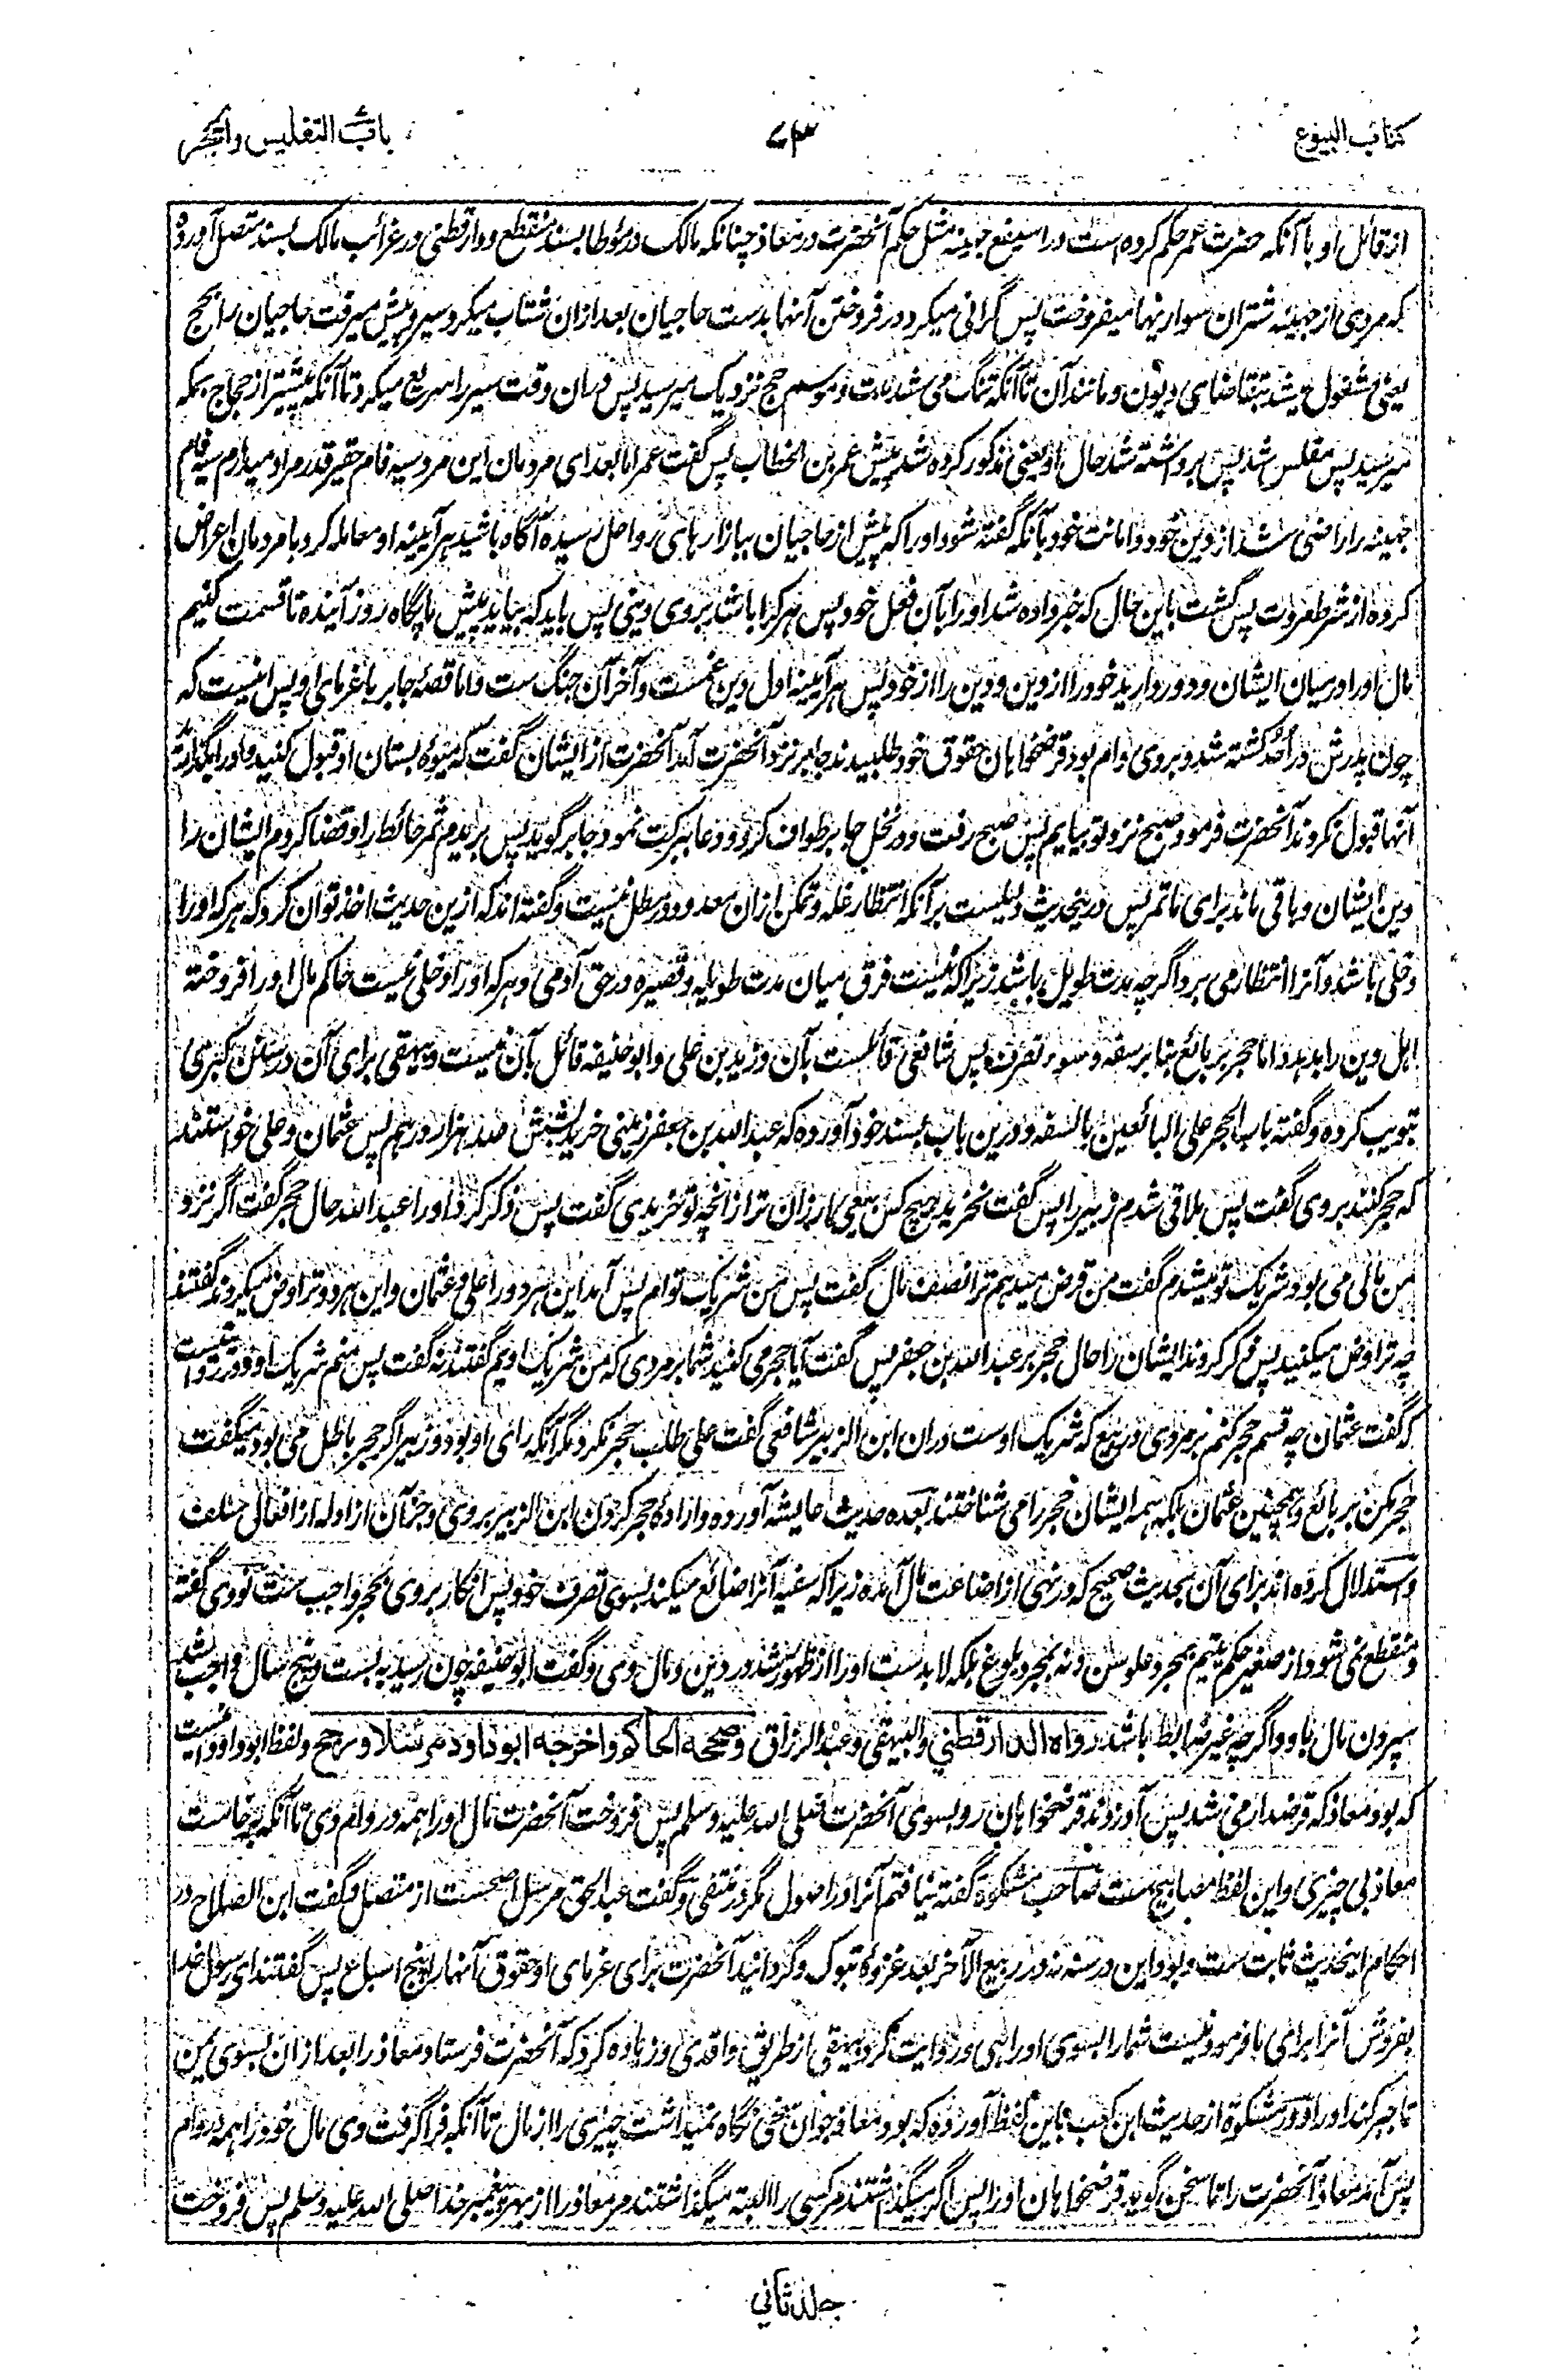 کتاب البیوع
۷۳
باب التفلیس والحجر
از قائل او با آنکه حضرت عمر حکم کرده است در اسیفع جهینه مثل حکم آنحضرت در معاذ چنانکه مالک در موطا بسند منقطع و دارقطنی در غرائب مالک بسند متصل آورده
که مردی از جهینه شتران سواریها میفروخت پس گرانی میکرد در فروختن آنها بدست حاجیان بعد ازان شتاب میکرد سیر و پیش میرفت حاجیان را بحج
یعنی مشغول میشد بتقاضای دیون و مانند آن تا آنکه تنگ می شد مدت و موسم حج نزدیک میرسید پس دران وقت سیر را سریع میکرد تا آنکه پیشتر از حجاج بمکه
میرسید پس مفلس شد پس برداشته شد حال او یعنی مذکور کرده شد پیش عمر بن الخطاب پس گفت عمر اما بعد ای مردمان این مرد سیه فام حقیر قدر مراد میدارم سیه فام
جهینه را راضی شد از دین خود و امانت خود بآنکه گفته شود او را که پیش از حاجیان ببازارهای رواحل رسیده آگاه باشید هر آیینه او معامله کرد با مردمان اعراض
کرده از شرط مروت پس گشت باین حال که خبر داده شد او را بآن فعل خود پس هر کرا باشد بروی دینی پس باید که بیاید پیش ما پگاه روز آینده تا قسمت کنیم
مال او را در میان ایشان و دور دارید خود را از دین و دین را از خود پس هر آیینه اول دین غمست و آخر آن جنگ ست و اما قصهٔ جابر با غرمای او پس اینست که
چون پدرش در احد کشته شد و بروی وام بود قرضخواهان حقوق خود طلبیدند جابر نزد آنحضرت آمد آنحضرت از ایشان گفت که میوهٔ بستان او قبول کنید و او را بگذارید
آنها قبول نکردند آنحضرت فرمود صبح نزد تو بیایم پس صبح رفت و در نخل جابر طواف کرد و دعا ببرکت نمود جابر گوید پس بریدم ثمر حائط را و قضا کردم ایشان را
دین ایشان و باقی ماند برای ما تمر پس درینحدیث دلیلست بر آنکه انتظار غله و تمکن ازان معدود در مطل نیست و گفته اند که ازین حدیث اخذ توان کرد که هر که او را
دخلی باشد و آنرا انتظار می برد اگرچه مدت طویل باشد زیرا که نیست فرق میان مدت طویله و قصیره در حق آدمی و هر که او را دخلی نیست حاکم مال او را فروخته
اهل دین را بدهد و اما حجر بر بائع بنا بر سفه و سوء تصرف پس شافعی قائلست بآن و زید بن علی و ابو حنیفه قائل بآن نیست و بیهقی برای آن در سنن کبری
تبویب کرده و گفته باب الحجر علی البائعین بالسفه و درین باب بسند خود آورده که عبد الله بن جعفر زمینی خرید بشش صد هزار درهم پس عثمان و علی خواستند
که حجر کنند بروی گفت پس ملاقی شدم زبیر را پس گفت نخرید هیچ کس بیعی که ارزان تر از آنچه تو خریدی گفت پس ذکر کرد او را عبد الله حال حجر گفت اگر نزد
من مالی می بود شریک تو میشدم گفت من قرض میدهم ترا نصف مال گفت پس من شریک توام پس آمد این هر دو را علی و عثمان و این هر دو تراوض میکردند گفتند
چه تراوض میکنید پس ذکر کردند ایشان را حال حجر بر عبد الله بن جعفر پس گفت آیا حجر می کنید شما بر مردی که من شریک اویم گفتند نه گفت پس منم شریک او و در روایتیست
که گفت عثمان چه قسم حجر کنم بر مردی در بیع که شریک اوست دران ابن الزبیر شافعی گفت علی طلب حجر نکرد مگر آنکه رای او بود و زبیر اگر حجر باطل می بود میگفت
حجر مکن بر بائع و همچنین عثمان بلکه همه ایشان حجر را می شناختند بعده حدیث عایشه آورده و ارادهٔ حجر کردن ابن الزبیر بروی و جز آن از ادله از افعال سلف
و استدلال کرده اند برای آن بحدیث صحیح که در نهی از اضاعت مال آمده زیرا که سفیه آنرا ضائع میکند بسوی تصرف خود پس انکار بروی بحجر واجب ست نووی گفته
و منقطع نمی شود از صغیر حکم یتیم بمجرد علو سن و نه بمجرد بلوغ بلکه لا بد ست او را از ظهور رشد در دین و مال وی و گفت ابو حنیفه چون رسید به بست و پنج سال واجب شد
سپردن مال باو و اگرچه غیر ضابط باشد رواه الدارقطنی والبیهقی وعبد الرزاق وصححه الحاکم واخرجه ابو داود مرسلا ورجح ولفظ ابو داود اینست
که بود معاذ که قرضدار می شد پس آوردند قرضخواهان رو بسوی آنحضرت صلی الله علیه وسلم پس فروخت آنحضرت مال او را همه در وام وی تا آنکه برخاست
معاذ بی چیزی و این لفظ مصابیح ست صاحب مشکوة گفته نیافتم آنرا در اصول مگر در منتقی و گفت عبد الحق مرسل اصحست از متصل و گفت ابن الصلاح در
احکام اینحدیث ثابت ست و بود این در سنه نه در ربیع الآخر بعد غزوهٔ تبوک و گردانید آنحضرت برای غرمای او حقوق آنها را پنج اسباع پس گفتند ای رسول خدا
بفروش آنرا برای ما فرمود نیست شما را بسوی او راهی و روایت کرد بیهقی از طریق واقدی و زیاده کرد که آنحضرت فرستاد معاذ را بعد ازان بسوی یمن
تا جبر کند او را و در مشکوة از حدیث ابن کعب باین لفظ آورده که بود معاذ جوان سخی نگاه نمیداشت چیزی را از مال تا آنکه فرا گرفت وی مال خود را همه در وام
پس آمد معاذ آنحضرت را تا سخن گوید قرضخواهان او را پس اگر میگذاشتند مر کسی را البته میگذاشتند مر معاذ را از بهر پیغمبر خدا صلی الله علیه وسلم پس فروخت
جلد ثانی